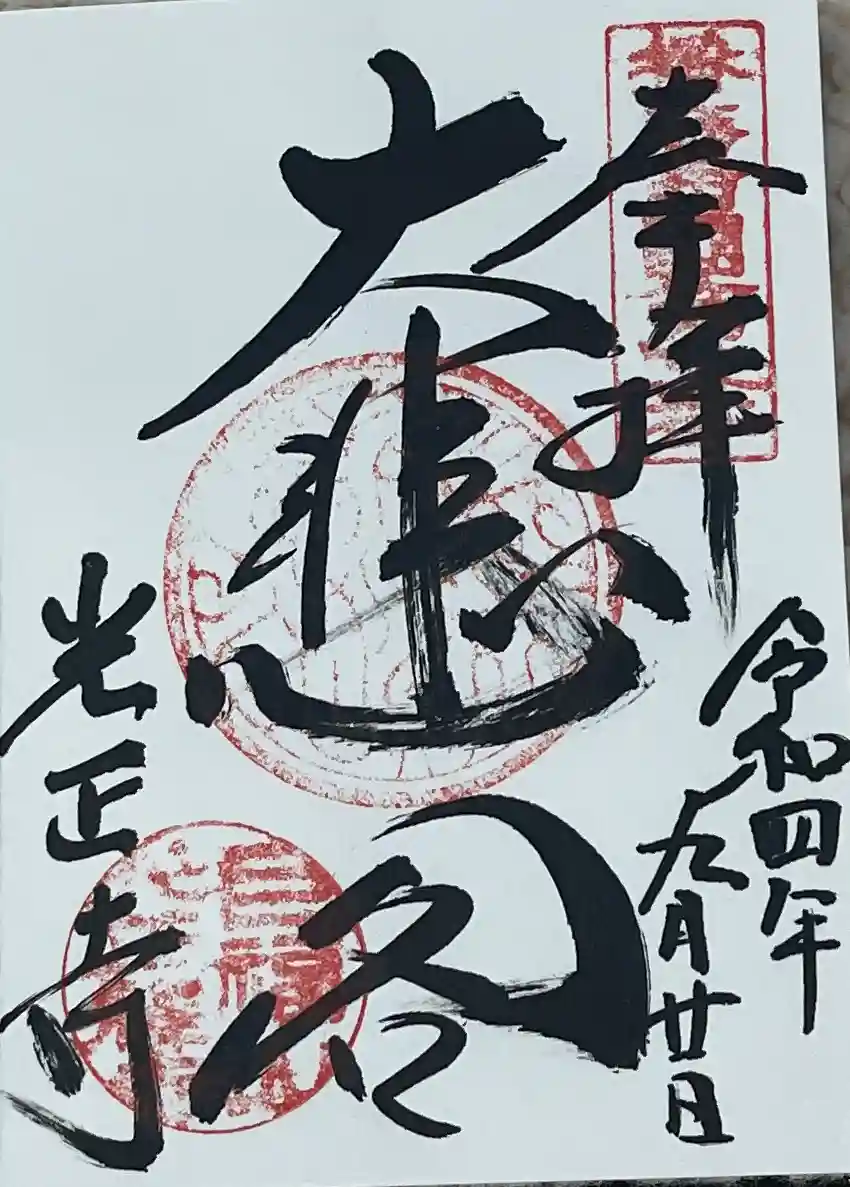 奉拝
令和四年
九月廿日
大悲閣
光正寺